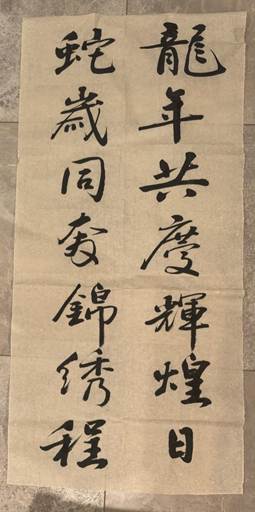 龍年共慶輝煌日
蛇歲同奔錦绣程